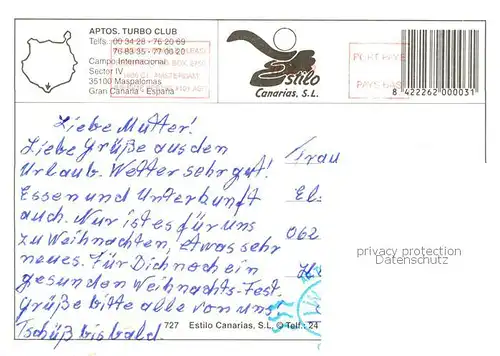 APTOS. TURBO CLUB
Telfs.: 00 34 28 - 76 20 69
76 83 35 - 77 08 20
Campo Internacional
Sector IV
35100 Maspalomas
Gran Canaria - España
Estilo
Canarias, S.L.
PORT PAYE
PAYS-BAS
8 422262 000031
Liebe Mutter!
Liebe Grüße aus den
Urlaub. Wetter sehr gut!
Essen und Unterkunft
auch. Nur ist es für uns
zu Weihnachten, etwas sehr
neues. Für Dich noch ein
gesunden Weihnachts-Fest.
Grüße bitte alle von uns.
Tschüß bis bald.
Frau
El
062
privacy protection
Datenschutz
727 Estilo Canarias, S.L. © Telf.: 24